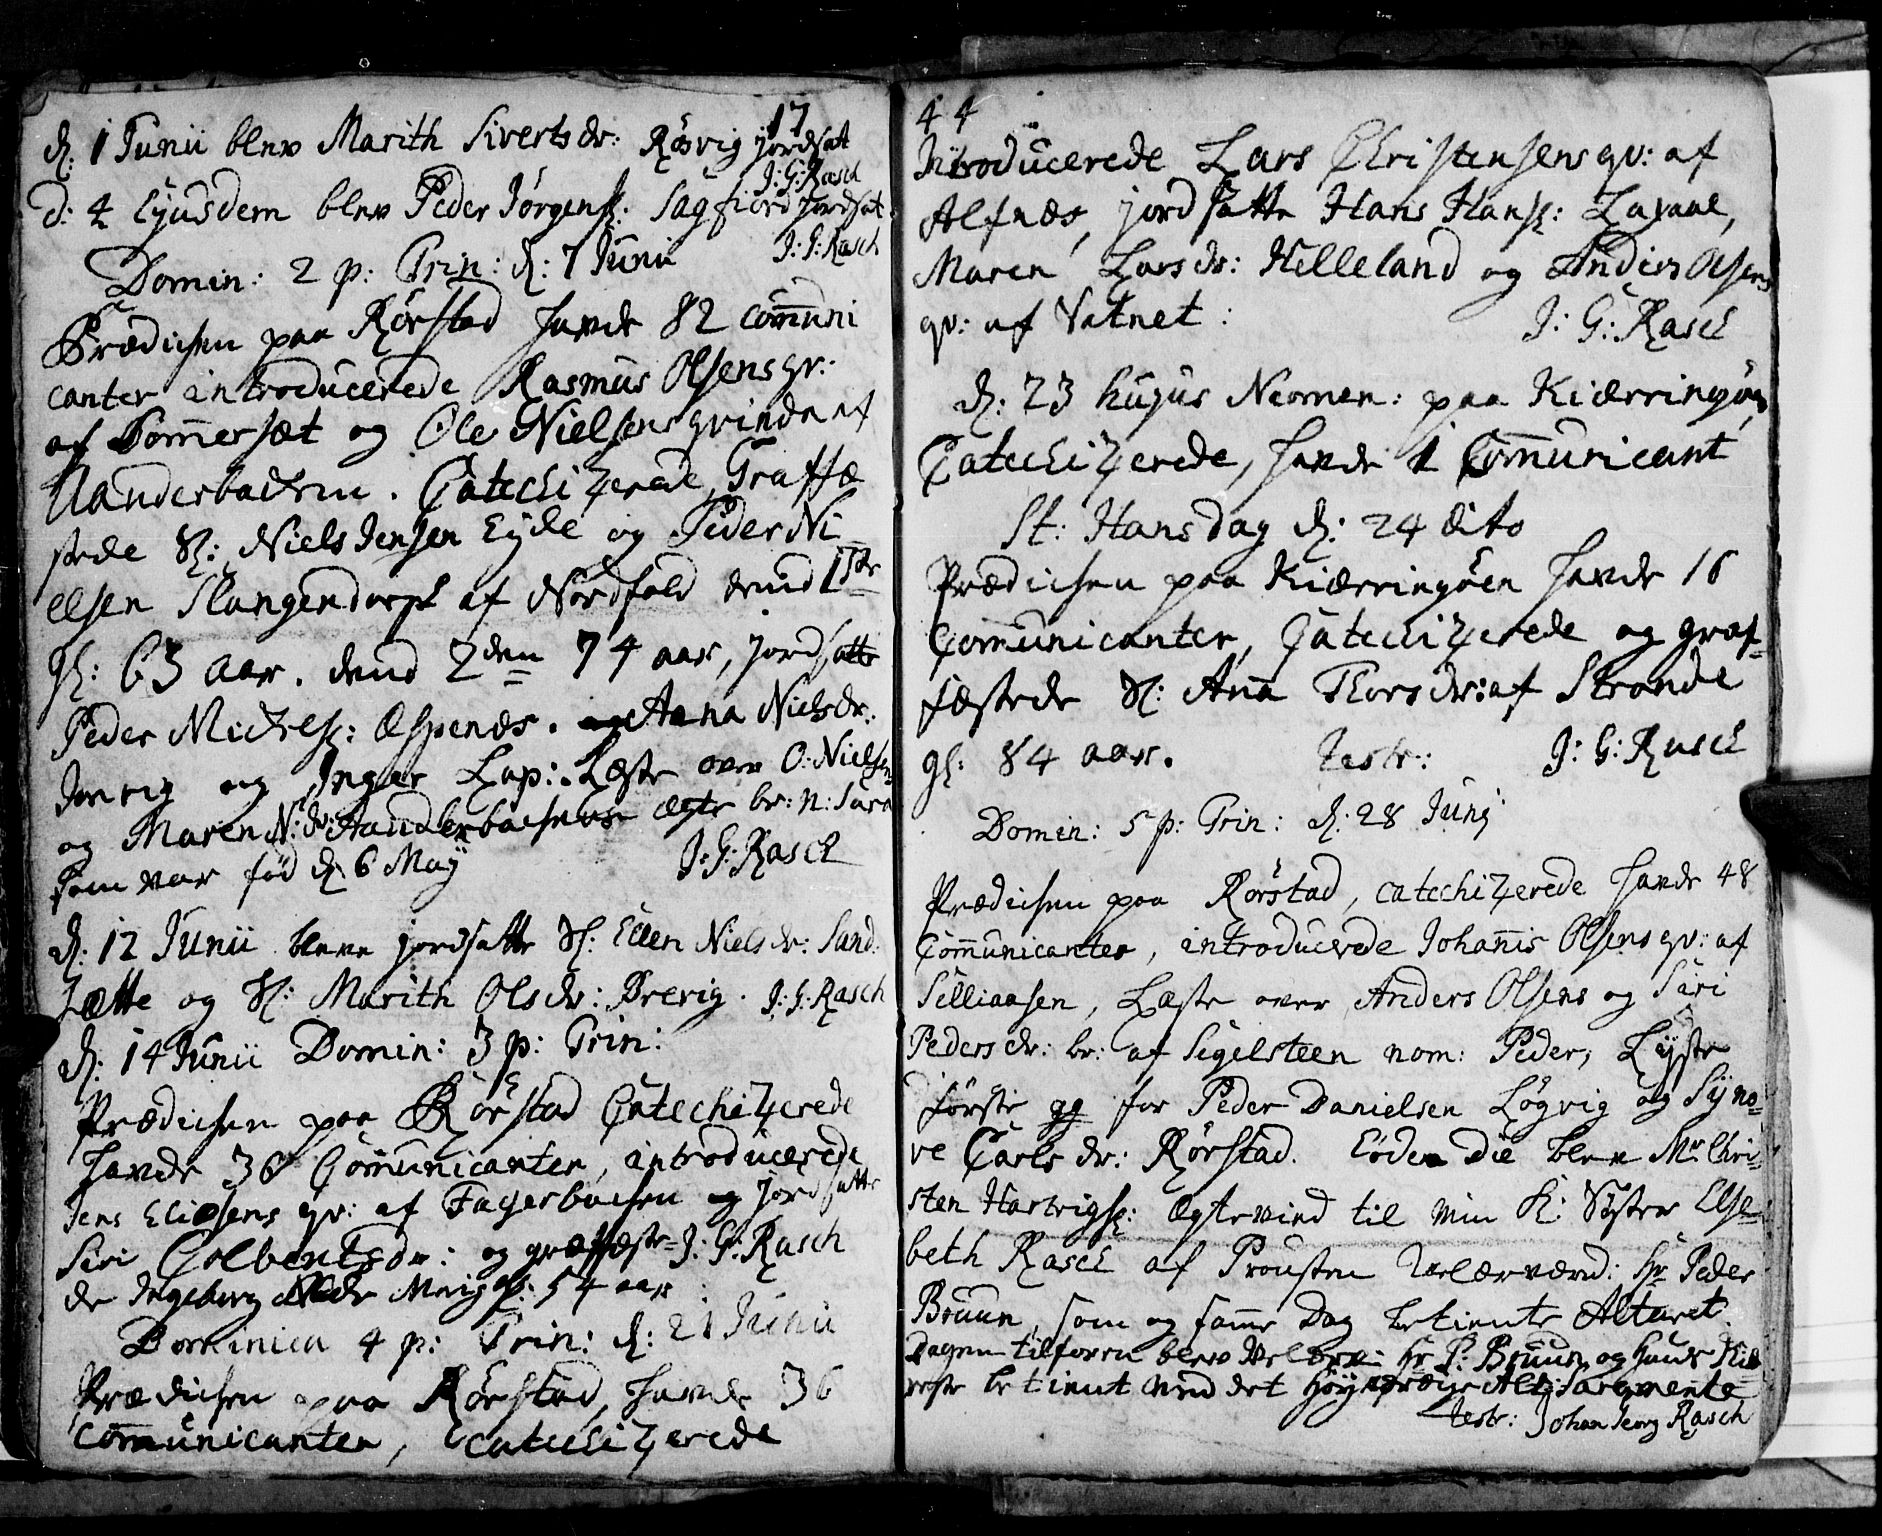 17
d: 1 Junii blev Marith Sivertsdr: Røsvig jordsat
J: G: Rasch
d: 4 Ejusdem blev Peder Jørgens: Sagfiord jordsat
J: G: Rasch
Domin: 2 p: Trin: d: 7 Junii
Prædichen paa Rörstad havde 82 communi
canter introducerede Rasmus Olsens qv:
af Tommersæt og Ole Nielsens qvinde af
Nanderbachen. Catechizerede, Graffæ
stede Sl: Niels Jensen Eyde og Peder Ni
elsen Slangendorph af Nordfold dend 1ste
gl: 63 aar. dend 2den 74 aar, jordsatte
Peder Michels: Espenæs. Anna Nielsdr:
og Inger Lap: Læste over O: Nielsens
og Maren N:dr: ægte br: n: Sara
som var fød d: 6 Maij J: G: Rasch
d: 12 Junii bleve jordsatte Sl: Ellen Nielsdr: Sand
sætte og Sl: Marith Olsdr: Brevig. J: G: Rasch
d: 14 Junii Domin: 3 p: Trin:
Prædichen paa Rörstad Catechizerede
havde 36 Communicanter, introducerede
Jens Eliæsens qv: af Fagerbachen og jordsatte
Siri Colbentsdr: og græffæste= J: G: Rasch
de Ingeborg gl: 54 aar
Dominica 4 p: Trin: d: 21 Junii
Prædichen paa Rörstad, havde 36
Communicanter, Catechizerede
44
Introducerede Lars Christensens qv: af
Alfnæs, jordsatte Hans Hans: Laxaae,
Maren Larsdr: Helleland og Anders Olsens
qv: af Vatnet: J: G: Rasch
d: 23 hujus Neomen: paa Kiærringøen
Catechizerede, havde 1 Communicant
St: Hansdag d: 24 dito
Prædichen paa Kiærringøen havde 16
Communicanter, Catechizerede og graf=
fæstede Sl: Ana Thorsdr: af Strande
gl: 84 aar. Testr: J: G: Rasch
Domin: 5 p: Trin: d: 28 Junj
Prædichen paa Rörstad, catechizerede havde 48
Communicanter, introducerede Johannis Olsens qv: af
Silliaasen, Læste over Anders Olsens og Siri
Pedersdr: br: af Sigelsteen nom: Peder, Lyste
første gg for Peder Danielsen Løgvig og Syno=
ve Carlsdr: Rörstad. Eodem die blev Mr Chri=
sten Hartvigs: ægtevied til min K: Syster Else=
beth Rasch af Prousten Velærværd: Hr Peder
Bruun, som og samme Dag betiente Altaret.
Dagen tilforn blev Hr P: Bruun og hans
betient med det Høyværdige Alt: Sacramente
Testr: Johan Georg Rasch